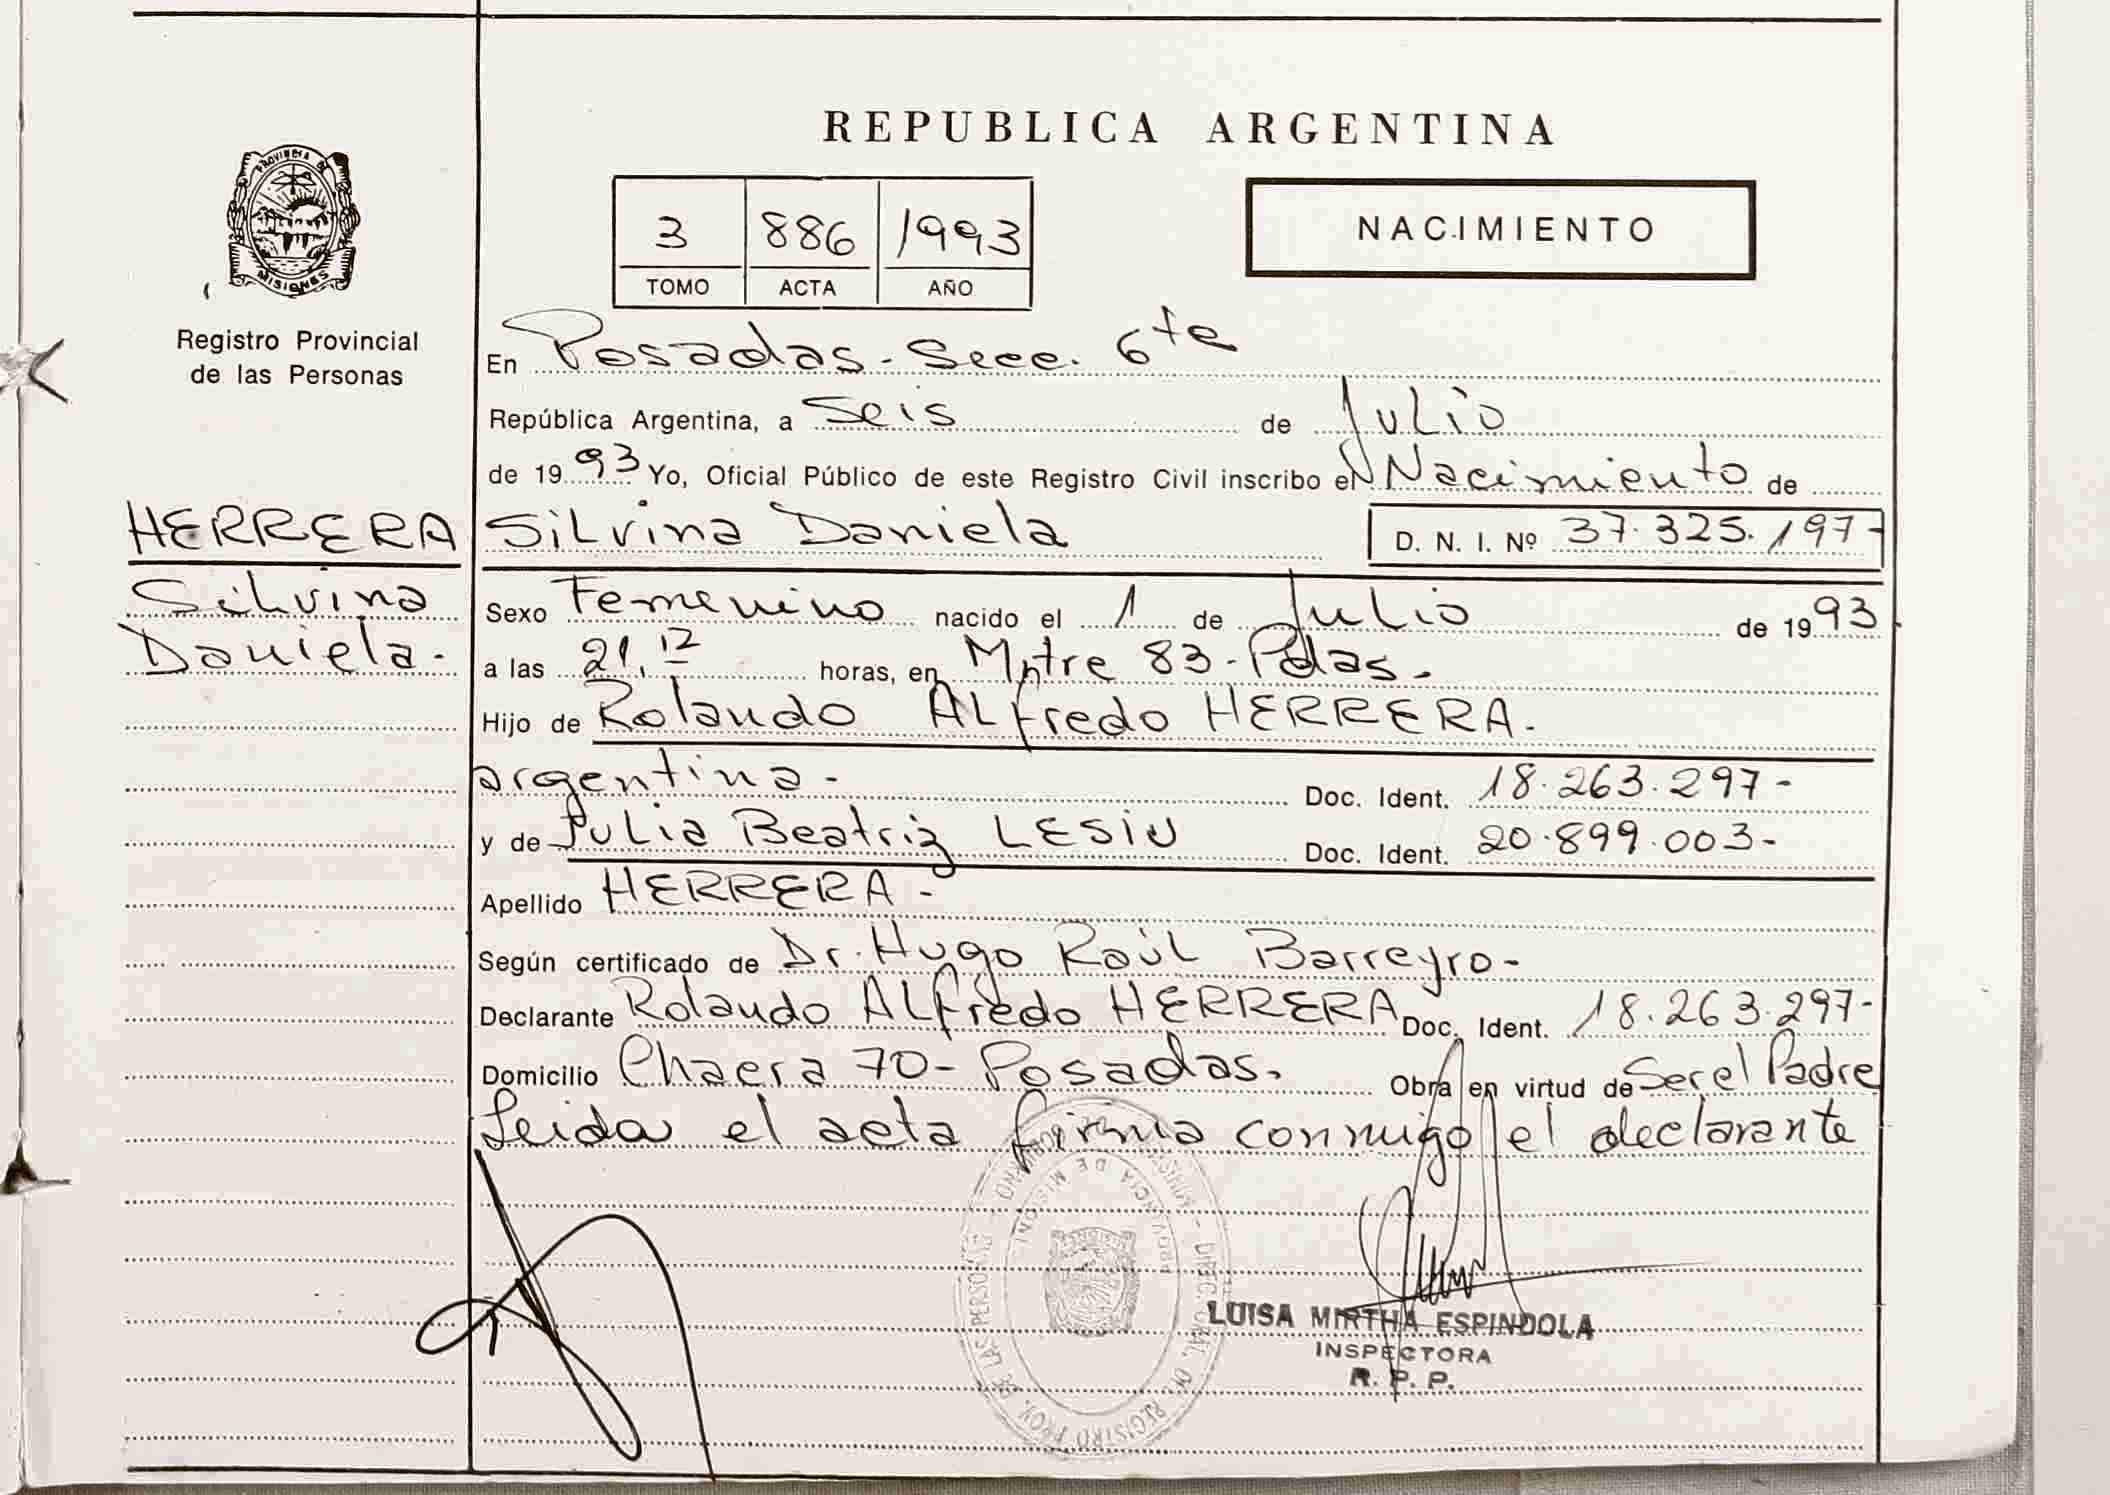 REPUBLICA ARGENTINA
PROVINCIA DE
MISIONES
Registro Provincial
de las Personas
3 886 1993
TOMO ACTA AÑO
NACIMIENTO
En Posadas - Secc. 6ta
República Argentina, a Seis de Julio
de 1993 Yo, Oficial Público de este Registro Civil inscribo el Nacimiento de
HERRERA Silvina Daniela D. N. I. Nº 37.325.197-
Silvina
Daniela.
Sexo Femenino nacido el 1 de Julio de 1993
a las 21.12 horas, en Mntre 83 - Pdas.
Hijo de Rolando Alfredo HERRERA.
argentina - Doc. Ident. 18.263.297-
y de Julia Beatriz LESIU Doc. Ident. 20.899.003-
Apellido HERRERA -
Según certificado de Dr. Hugo Raúl Barreyro-
Declarante Rolando Alfredo HERRERA Doc. Ident. 18.263.297-
Domicilio Chacra 70- Posadas. Obra en virtud de Ser el Padre
Leida el acta firma conmigo el declarante
LUISA MIRTHA ESPINDOLA
INSPECTORA
R. P. P.